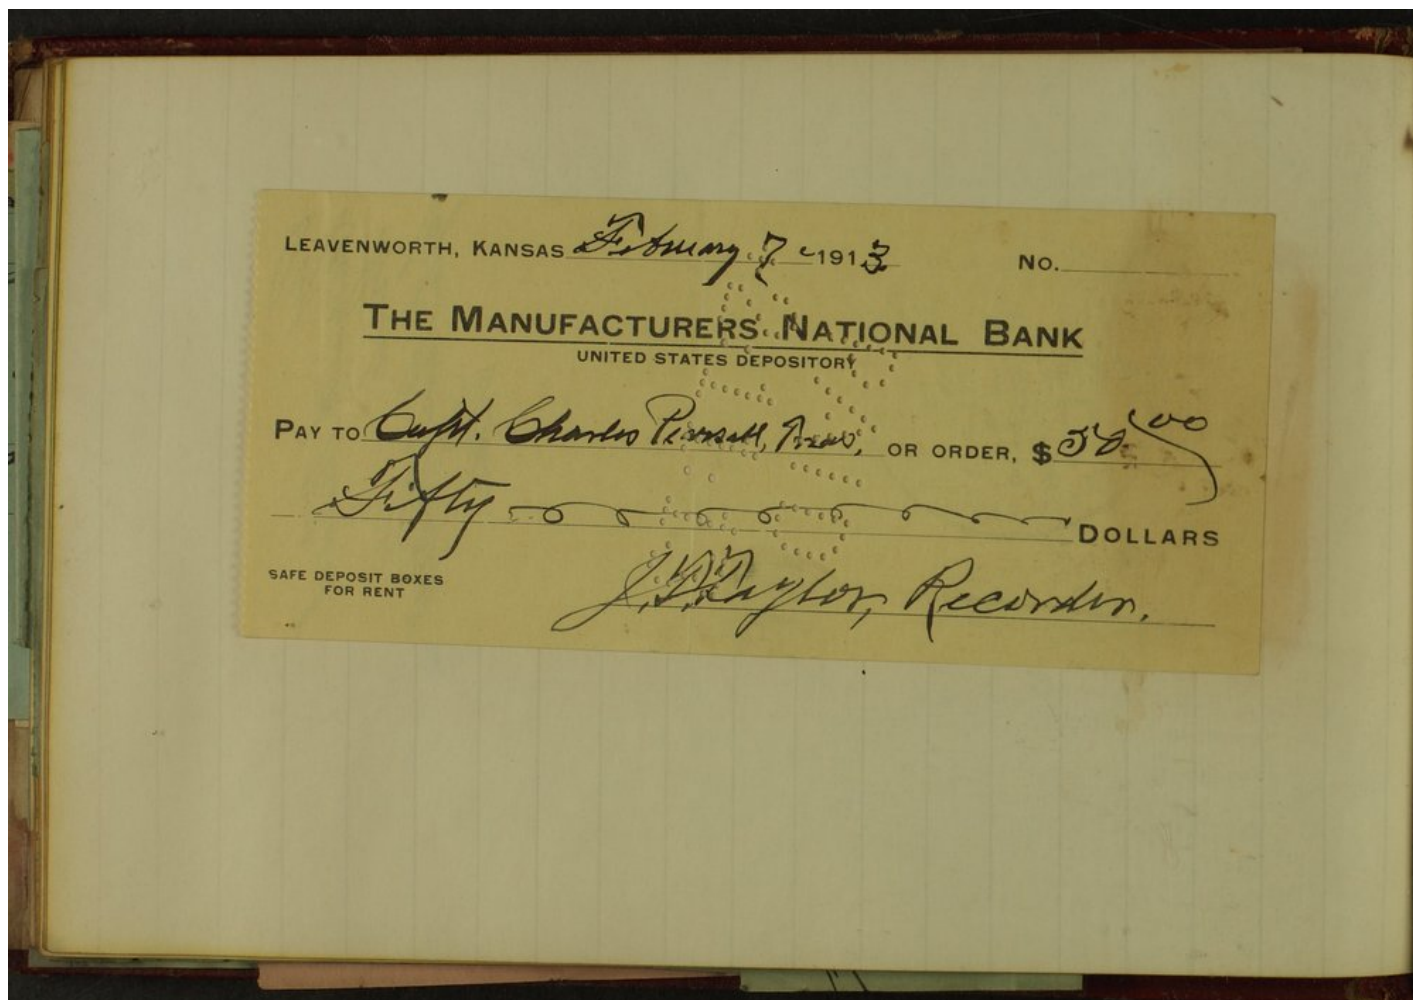 LEAVENWORTH, KANSAS February 7 1913 No.
THE MANUFACTURERS NATIONAL BANK
UNITED STATES DEPOSITORY
PAY TO Capt. Charles Pearsall, Treas, OR ORDER, $50.00
Fifty DOLLARS
SAFE DEPOSIT BOXES
FOR RENT
J. T. Taylor, Recorder.